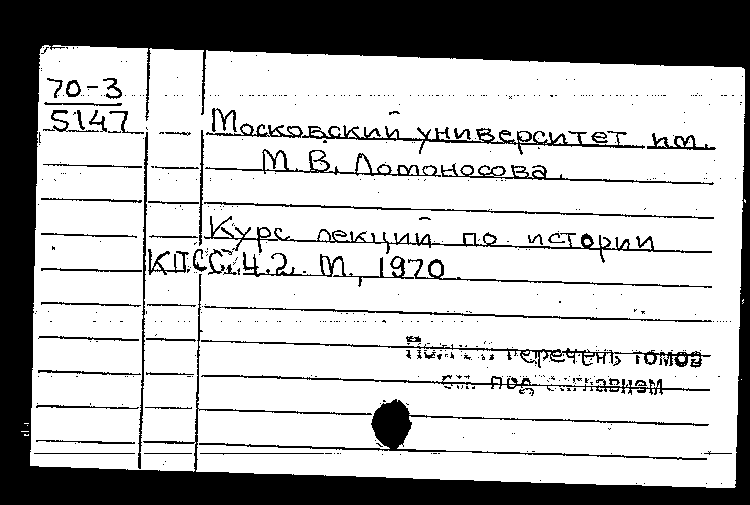 70-3
5147
Московский университет им.
М.В. Ломоносова.
Курс лекций по истории
КПСС. Ч.2. М., 1970.
Полный перечень томов
см. под заглавием